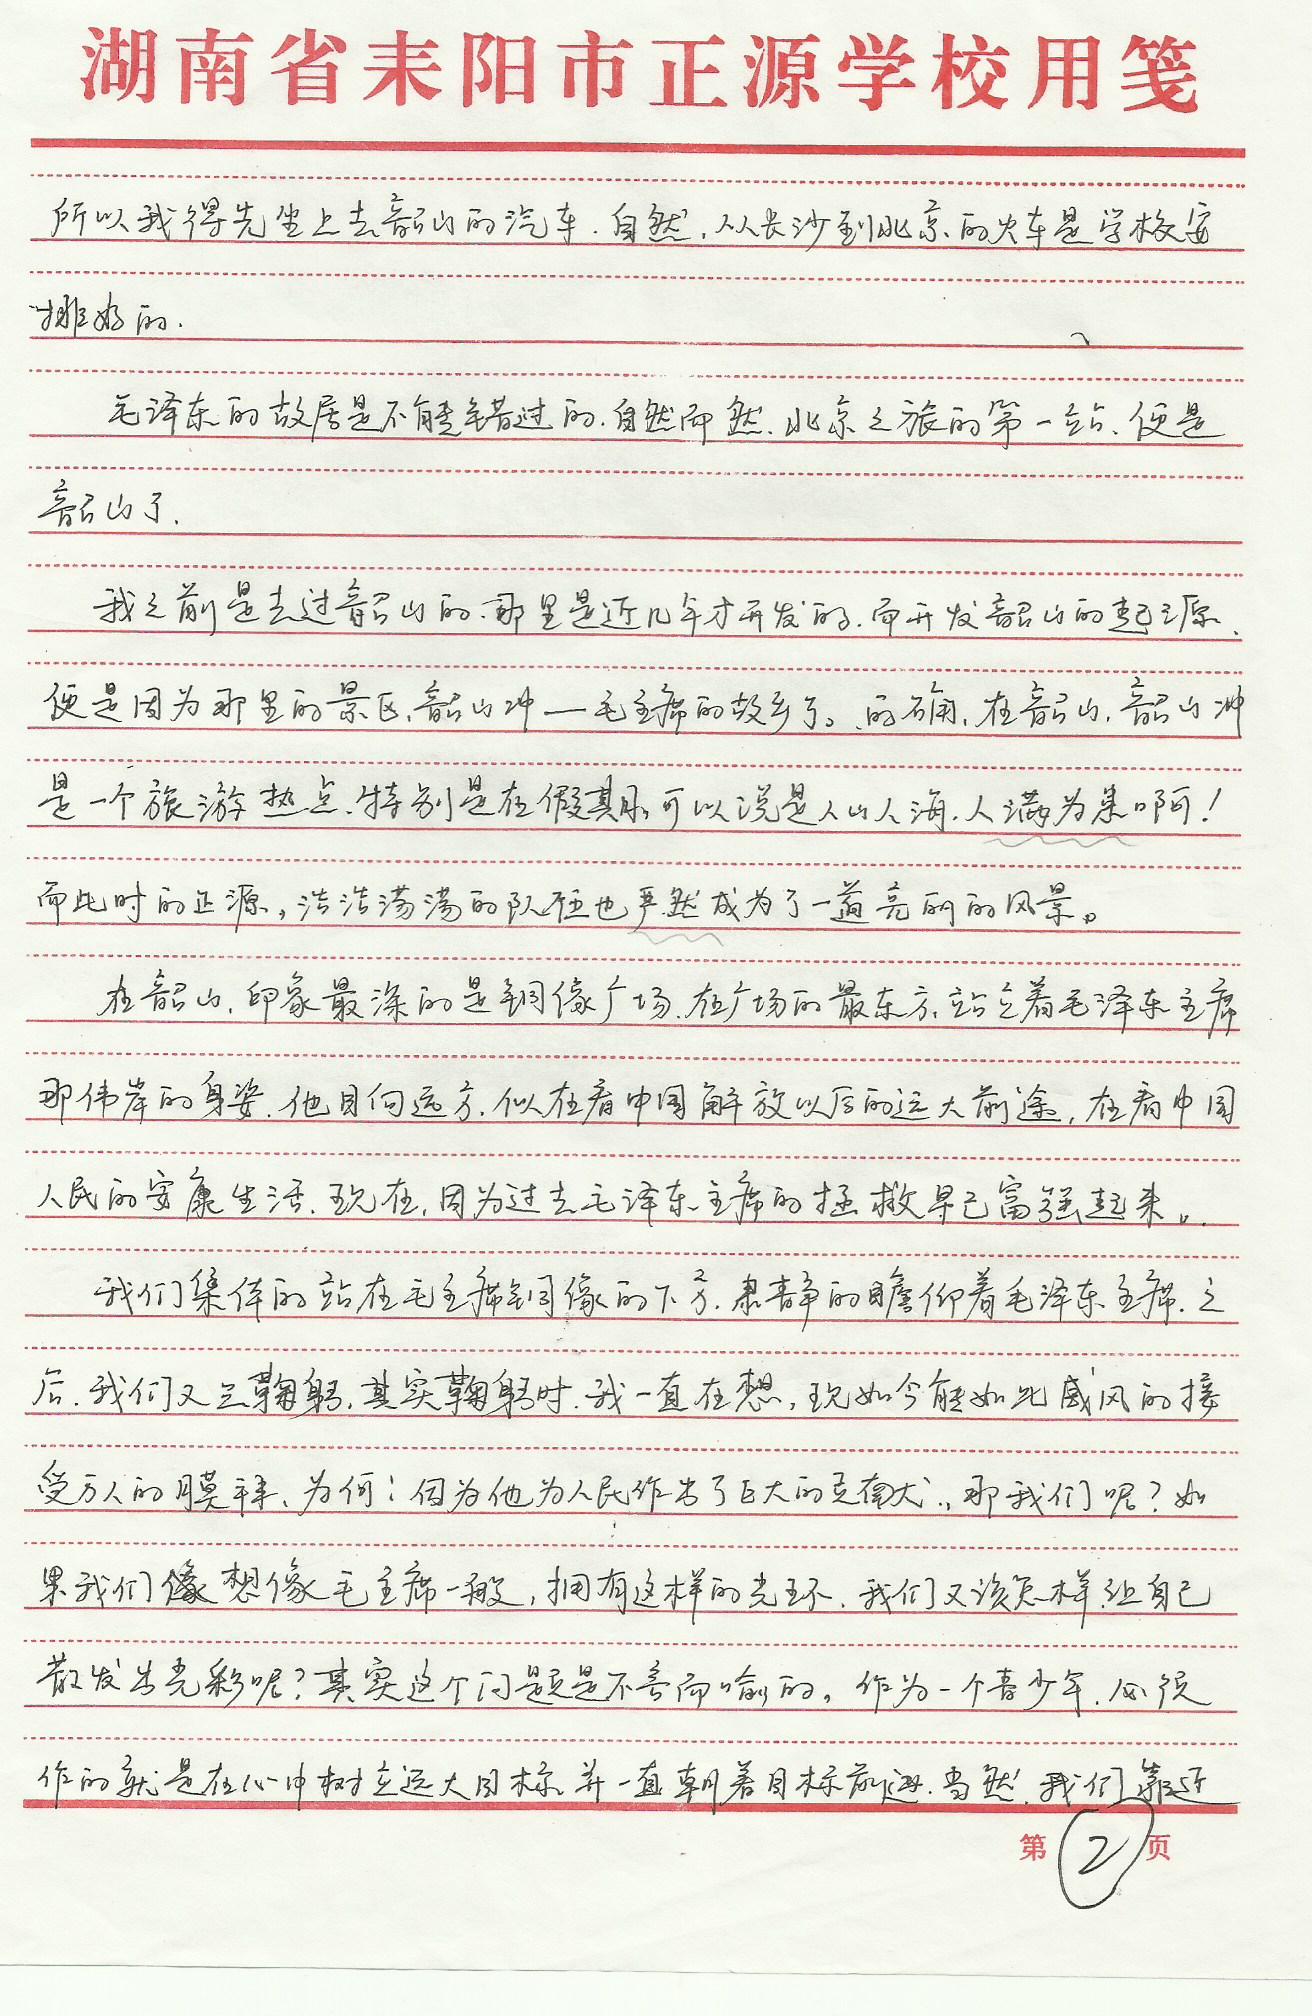 湖南省耒阳市正源学校用笺
所以我得先坐上去韶山的汽车.自然,从长沙到北京的火车是学校安
排好的.
毛泽东的故居是不能错过的.自然而然.北京之旅的第一站.便是
韶山了.
我之前是去过韶山的.那里是近几年才开发的.而开发韶山的起源.
便是因为那里的景区,韶山冲—毛主席的故乡了。的确,在韶山,韶山冲
是一个旅游热点.特别是在假期,可以说是人山人海.人满为患啊!
而此时的正源,浩浩荡荡的队伍也严然成为了一道亮丽的风景。
在韶山.印象最深的是铜像广场.在广场的最东方,站立着毛泽东主席
那伟岸的身姿.他目向远方.似在看中国解放以后的远大前途,在看中国
人民的安康生活.现在,因为过去毛泽东主席的拯救早已富强起来。
我们集体的站在毛主席铜像的下方.肃静的瞻仰着毛泽东主席.之
后.我们又三鞠躬.其实鞠躬时.我一直在想,现如今能如此威风的接
受万人的膜拜、为何:因为他为人民作出了巨大的贡献.那我们呢?如
果我们想像毛主席一般,拥有这样的光环.我们又该怎样让自己
散发出光彩呢?其实这个问题是不言而喻的。作为一个青少年.必须
作的就是在心中树立远大目标并一直朝着目标前进.当然.我们靠近
第2页